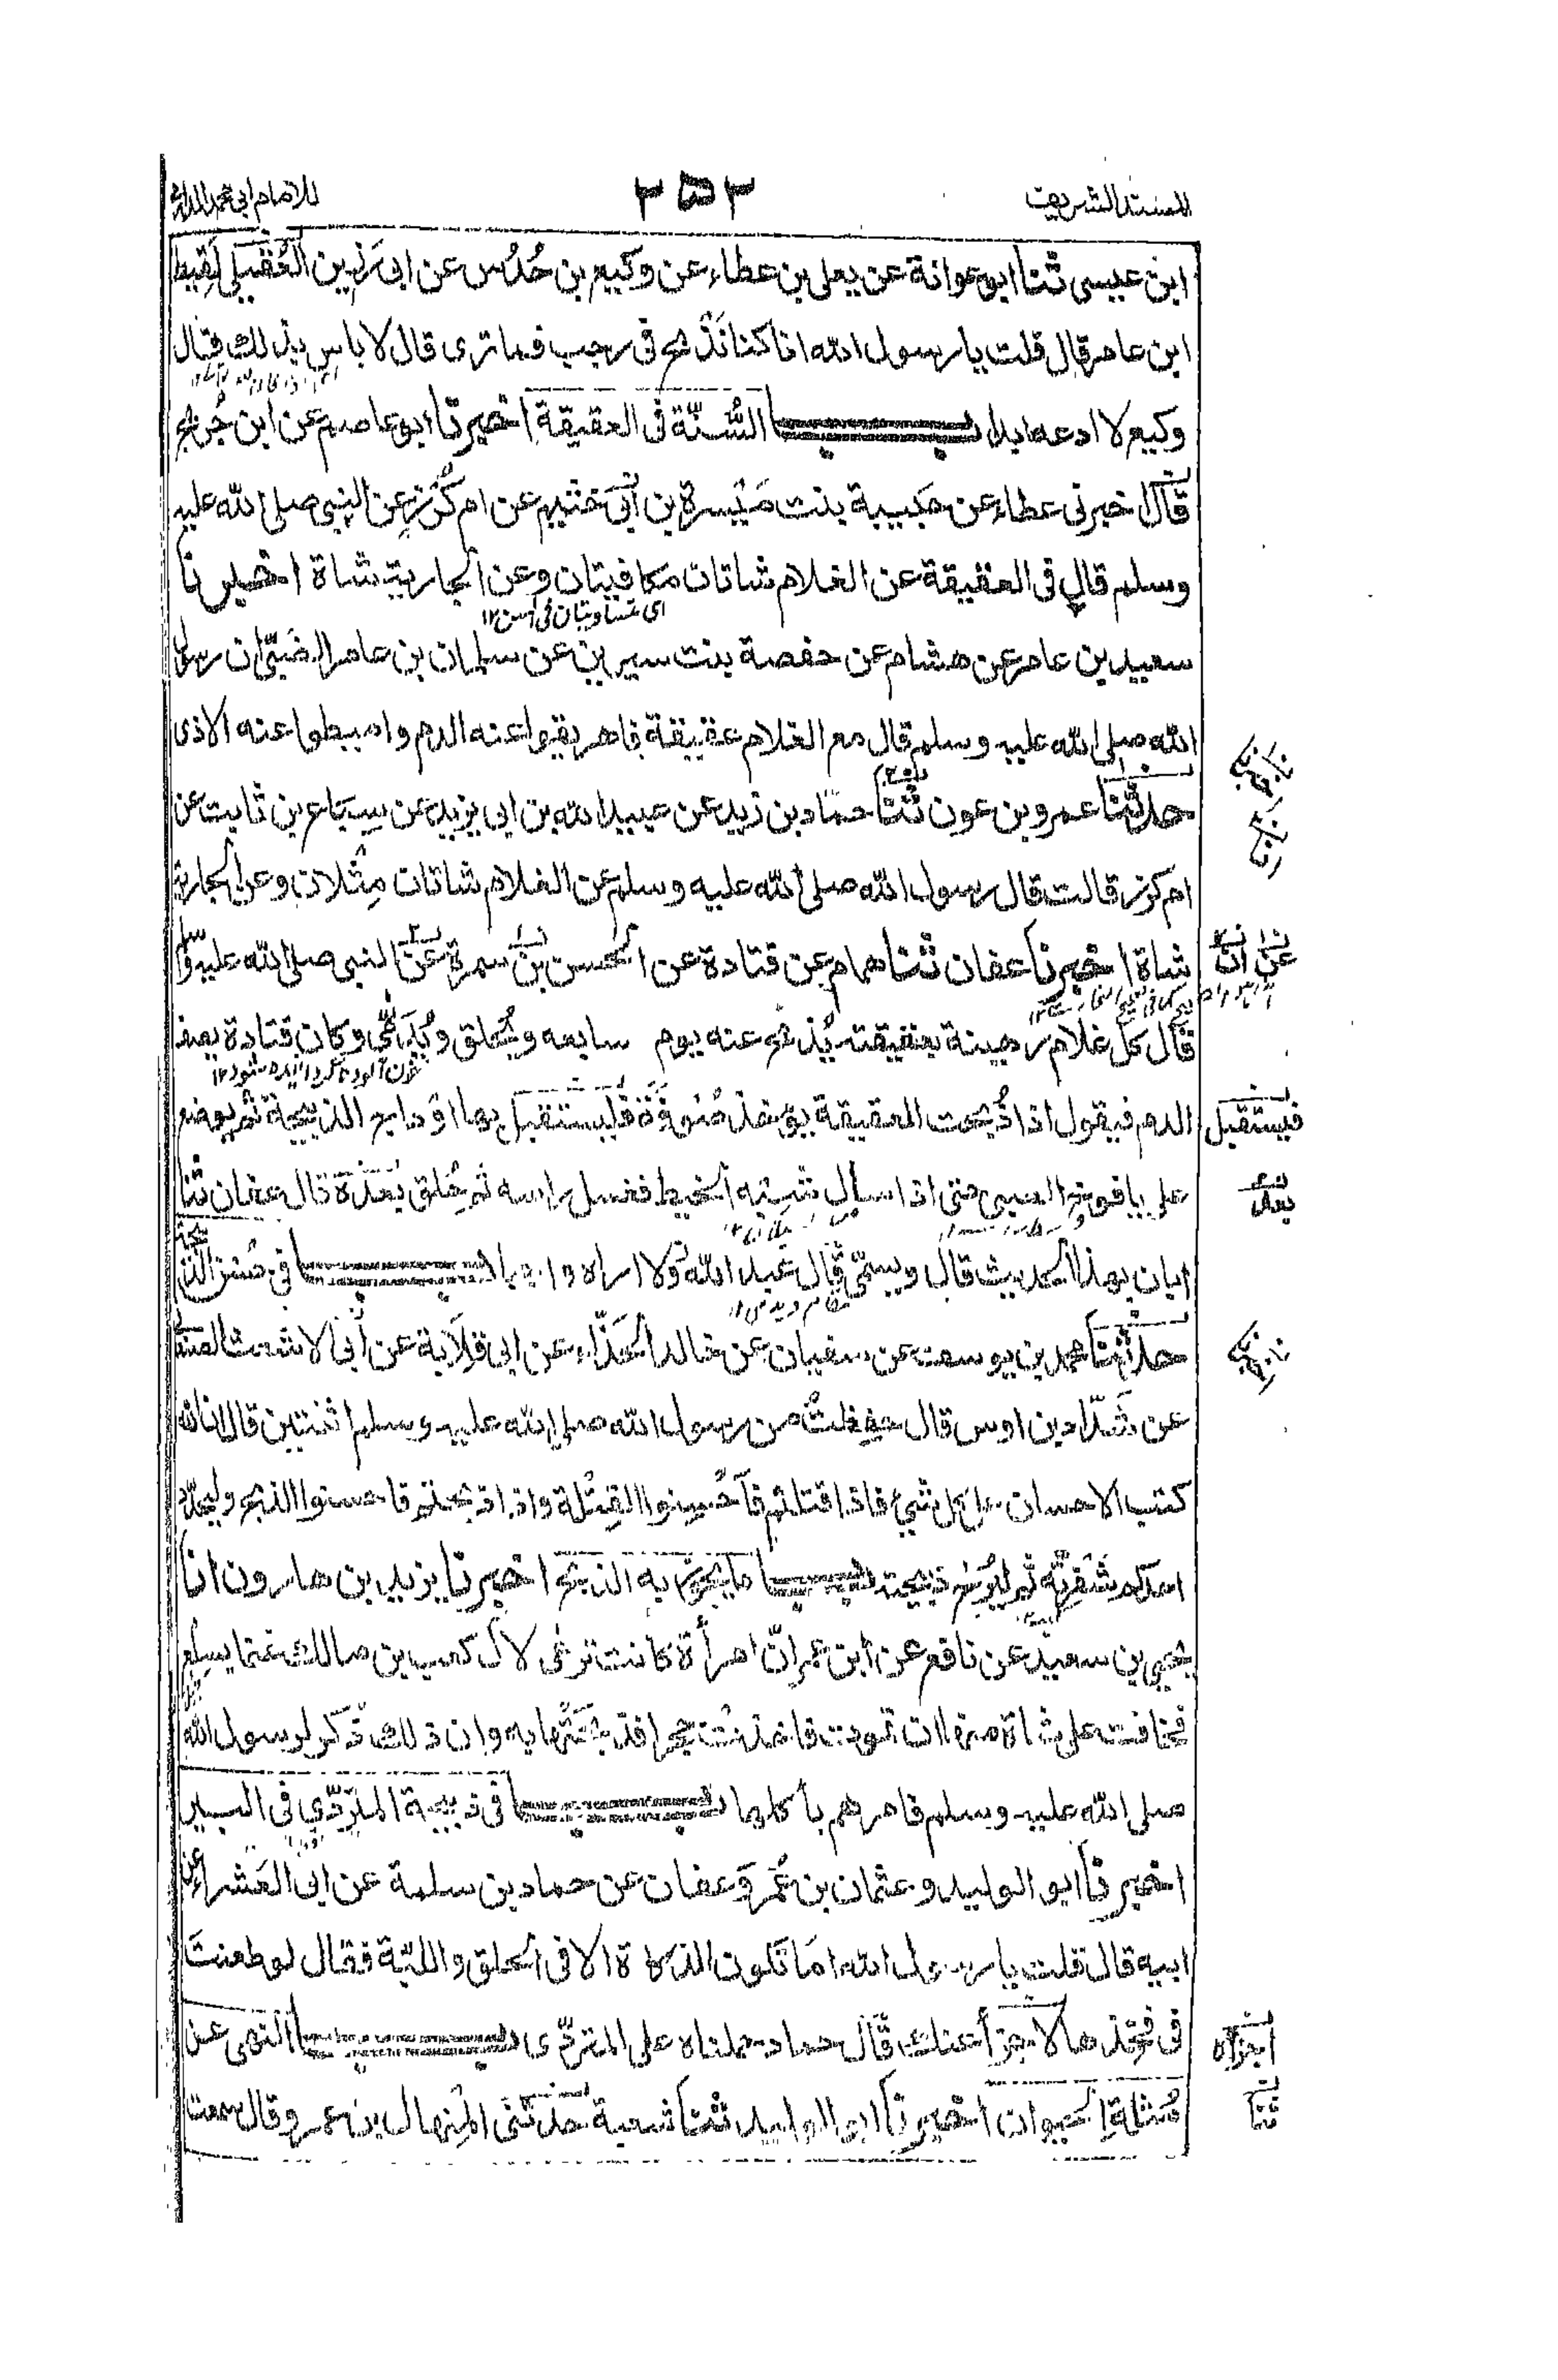 المسند الشريف
٢٥٢
للامام ابي محمد الدارمي
ابن عيسى ثنا ابو عوانة عن يعلى بن عطاء عن وكيع بن حُدُس عن ابى رَزِين العُقَيلى لَقِيط
ابن عامر قال قلت يا رسول الله انا كنا نَذْبح فى رجب فما ترى قال لا باس بذلك قال
وكيع لا ادعه ابدا باب السُّنّة فى العقيقة اخبرنا ابو عاصم عن ابن جُريج
قال اخبرنى عطاء عن حبيبة بنت مَيْسرة بن ابى خثيم عن ام كُرْز عن النبى صلى الله عليه
وسلم قال فى العقيقة عن الغلام شاتان مكافيتان وعن الجارية شاة اخبرنا
اى متساويتان فى السن ١٢
سعيد بن عامر عن هشام عن حفصة بنت سيرين عن سلمان بن عامر الضَبّى ان رسول
الله صلى الله عليه وسلم قال مع الغلام عقيقة فاهريقوا عنه الدم واميطوا عنه الاذى
حدثنا عمرو بن عون ثنا حماد بن زيد عن عبيد الله بن ابى يزيد عن سِبَاع بن ثابت عن
ام كرز قالت قال رسول الله صلى الله عليه وسلم عن الغلام شاتان مِثْلان وعن الجارية
شاة اخبرنا عفان ثنا همام عن قتادة عن الحسن بن سمرة عن النبى صلى الله عليه و
عن ان
قال كل غلام رهينة بعقيقته يُذبح عنه يوم سابعه ويُحلق ويُدَمّى وكان قتادة يصف
خون آلوده كردانيده شود ١٢
الدم فيقول اذا ذُبحت العقيقة يؤخذ صُوفَة فليستقبل بها اوداج الذبيحة ثم يوضع
فيستقبل
على يافوخ الصبى حتى اذا سال شبه الخيط غسل راسه ثم حُلق بعده قال عفان ثنا
بعد
ابان بهذا الحديث قال ويسمى قال عبد الله ولا اراه واجبا باب فى حسن الذبيحة
حدثنا محمد بن يوسف عن سفيان عن خالد الحَذّاء عن ابى قِلَابة عن ابى الاشعث الصنعانى
عن شَدّاد بن اوس قال حفِظتُ من رسول الله صلى الله عليه وسلم اثنتين قال ان الله
كتب الاحسان على كل شيء فاذا قتلتم فاَحْسِنوا القِتْلة واذا ذبحتم فاحسنوا الذبح وليحدّ
احدكم شَفْرته ثم ليُرِحْ ذبيحته باب ما يجوز به الذبح اخبرنا يزيد بن هارون انا
يحيى بن سعيد عن نافع عن ابن عمر انّ امرأة كانت ترعى لآل كعب بن مالك غنما بسلع
فخافت على شاة منها ان تموت فاخذتْ حجرا فذبحَتْها به وان ذلك ذكر لرسول الله
صلى الله عليه وسلم فامرهم بأكلها باب فى ذبيحة المترَدّي فى البير
اخبرنا ابو الوليد وعثمان بن عُمَر وعفان عن حماد بن سلمة عن ابى العَشراء عن
ابيه قال قلت يا رسول الله امَا تكون الذكاة الا فى الحلق واللبّة فقال لو طعنتَ
فى فخذها لاجزأ عنك قال حماد حملناه على المتردّى باب النهى عن
اجزاء
مُثلةِ الحيوان اخبرنا ابو الوليد ثنا شعبة حدثنى المِنهال بن عمرو قال سمعت
ثنا